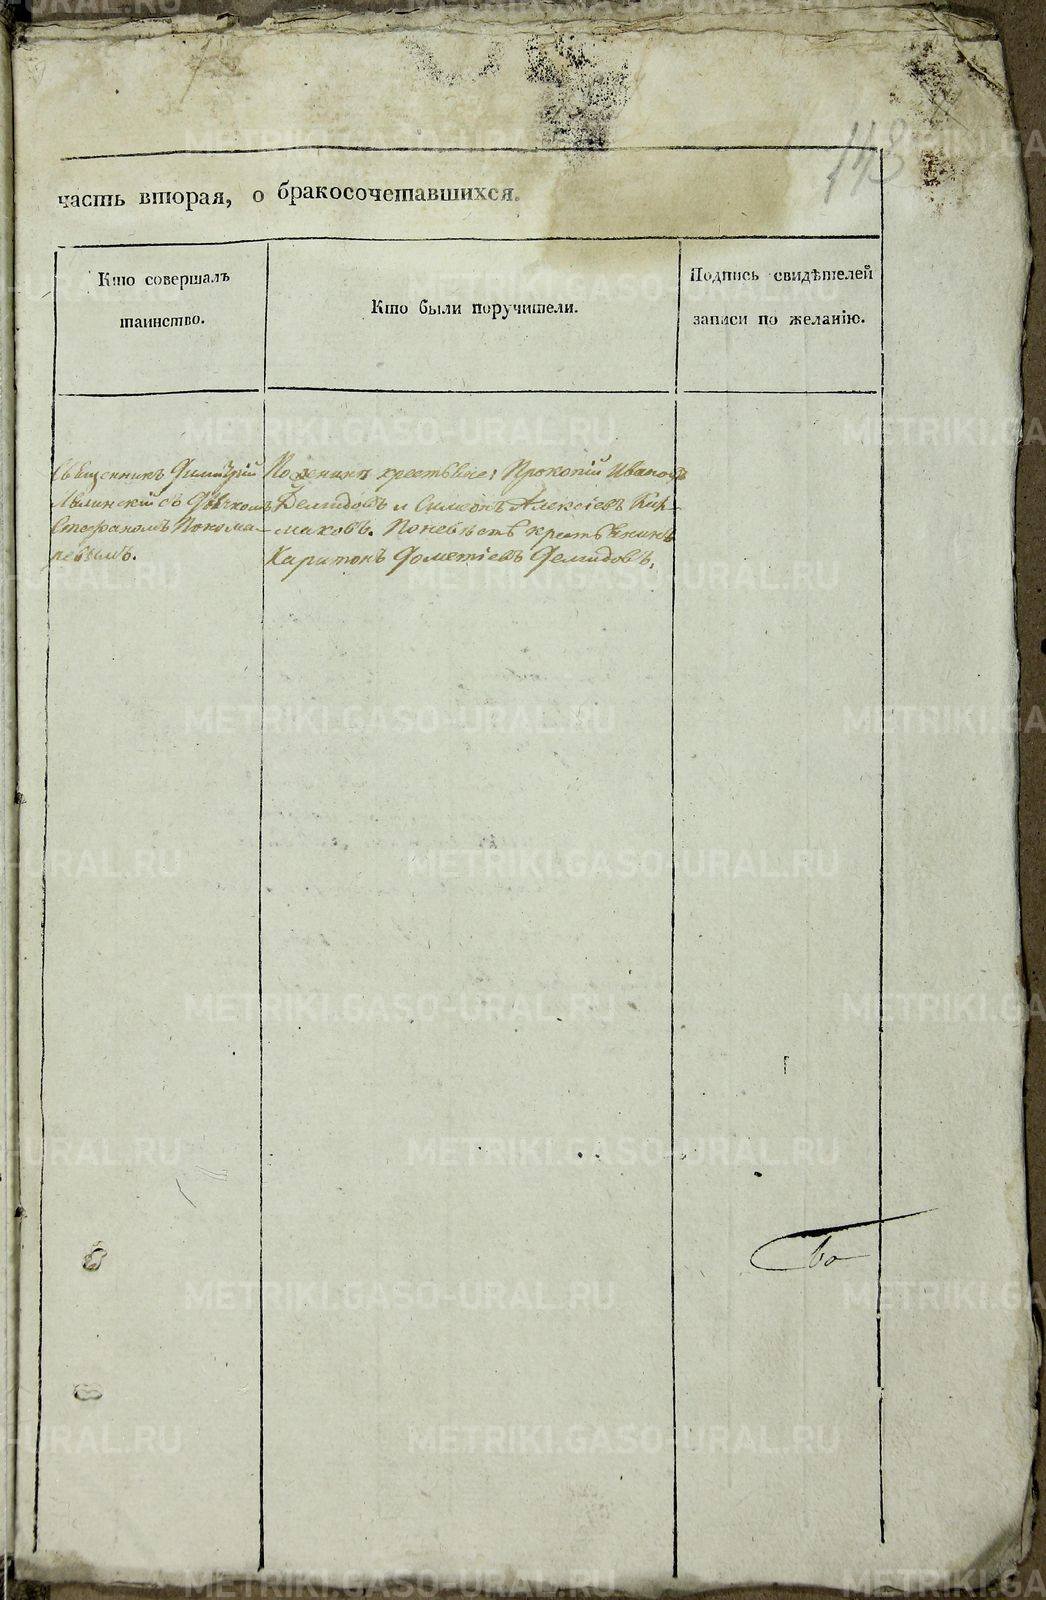 143
часть вторая, о бракосочетавшихся.
Кто совершалъ
таинство.
Кто были поручители.
Подпись свидѣтелей
записи по желанію.
Священникъ Димитрій
съ Дьячкомъ
Стефаномъ Понома-
ревымъ.
По женихѣ крестьяне: Прокопій Ивановъ
Демидовъ и Симеонъ Алексіевъ Кир-
маковъ. По невѣстѣ крестьянинъ
Харитонъ Дометіевъ Демидовъ.
METRIKI.GASO-URAL.RU